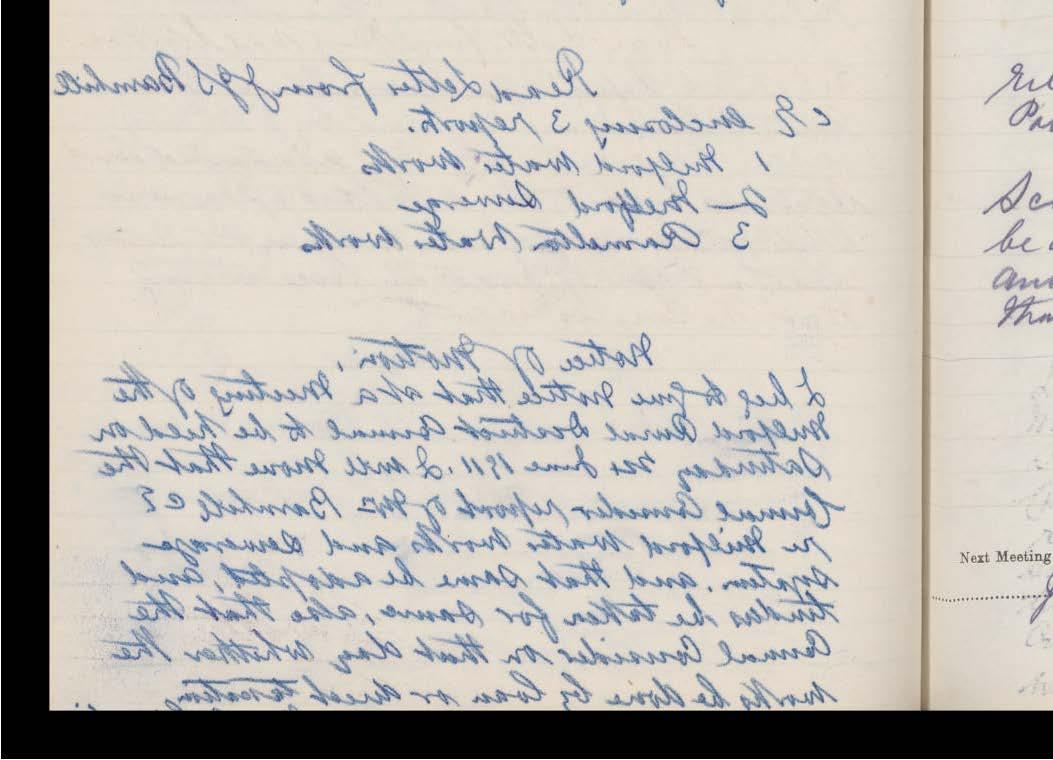 Read Letter from Barnhill
C E enclosing 3 reports.
1 Milford Water Works
2 — Milford Sewerage
3 Ramelton Water Works
Notice of Motion,
I beg to give Notice that at a Meeting of the
Milford Rural District Council to be held on
Saturday June 1911. I will move that the
Council Consider report of Mr Barnhill C E
re Milford Water Works and Sewerage
system, and that same be adopted, and
tenders be taken for same, also that the
Council Consider on that day whether the
works be done by loan or direct taxation
be
Next Meeting